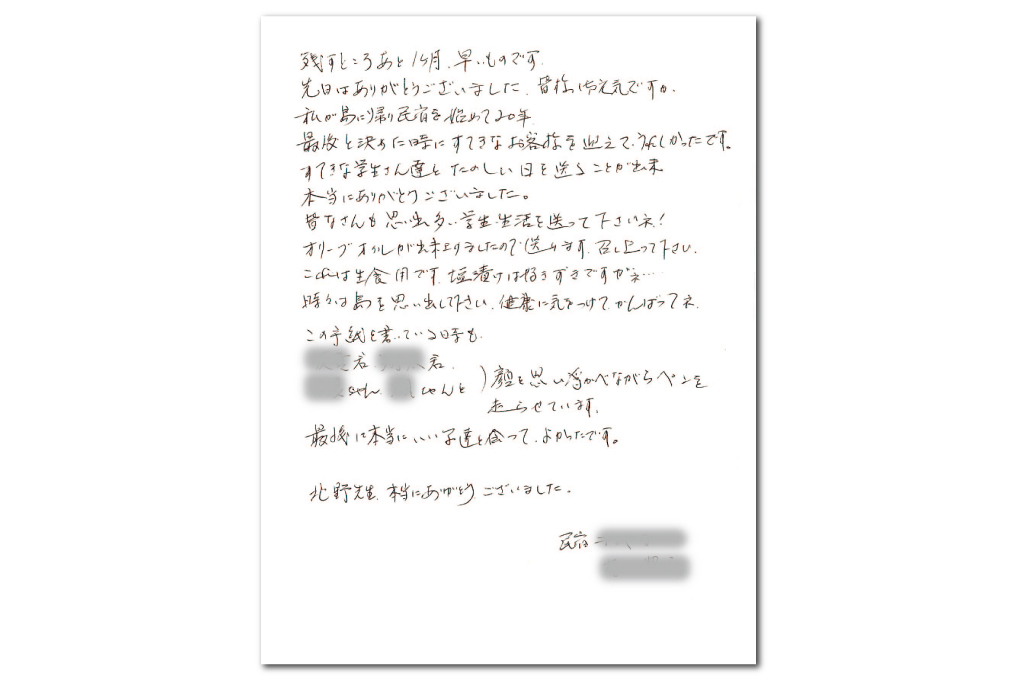 残すところあと1ヶ月、早いものです。
先日はありがとうございました。皆様お元気ですか。
私が島に帰り民宿を始めて20年
最後と決めた時にすてきなお客様を迎えて、うれしかったです。
すてきな学生さん達とたのしい日を送ることが出来
本当にありがとうございました。
皆なさんも思い出多い学生生活を送って下さいネ!
オリーブオイルが出来上りましたので送ります。召し上って下さい。
これは生食用です。塩漬けは好きずきですがネ…
時々は島を思い出して下さい。健康に気をつけて、がんばってネ。
この手紙を書いている時も
君、君、
ちゃん、ちゃんと)顔を思い浮かべながらペンを
走らせています。
最後に本当にいい子達と会って、よかったです。
北野先生、本当にありがとうございました。
民宿